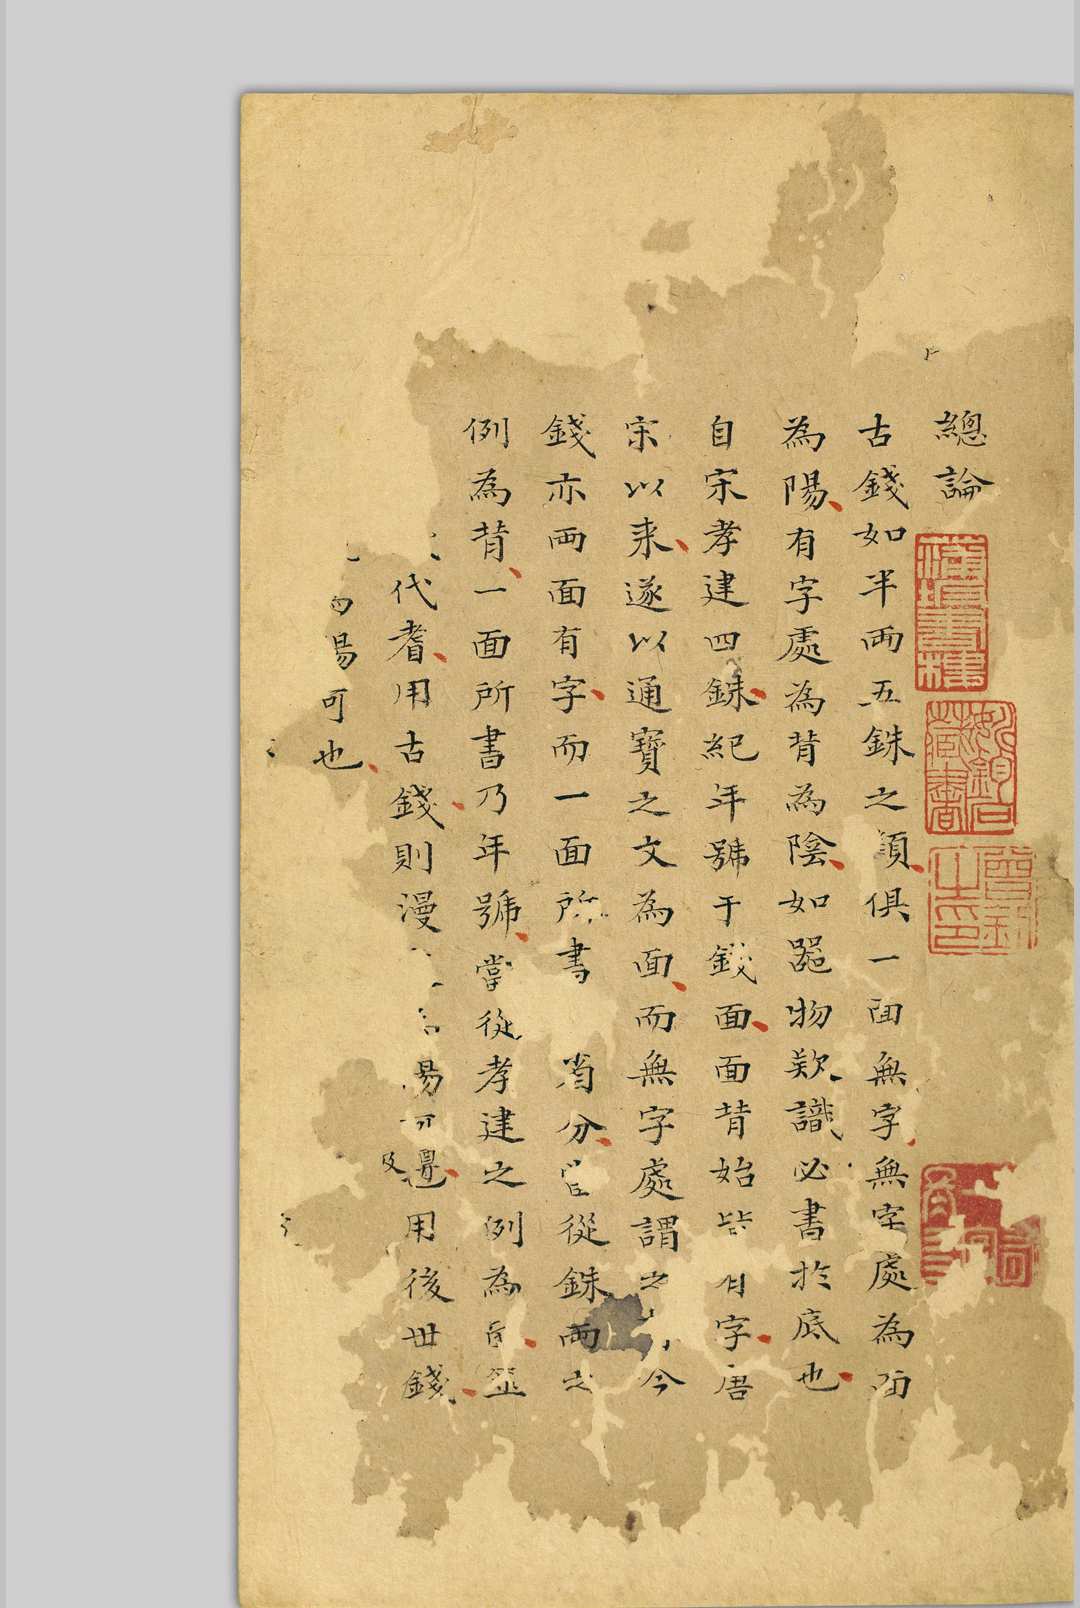 總論
古錢如半兩五銖之類俱一面無字無字處為面
為陽有字處為背為陰如器物款識必書於底也
自宋孝建四銖紀年號于錢面面背始皆有字唐
宋以来遂以通寶之文為面而無字處謂之今
錢亦兩面有字而一面所書省分從銖兩之
例為背一面所書乃年號當從孝建之例為面
代耆用古錢則漫易用後世錢
昜可也